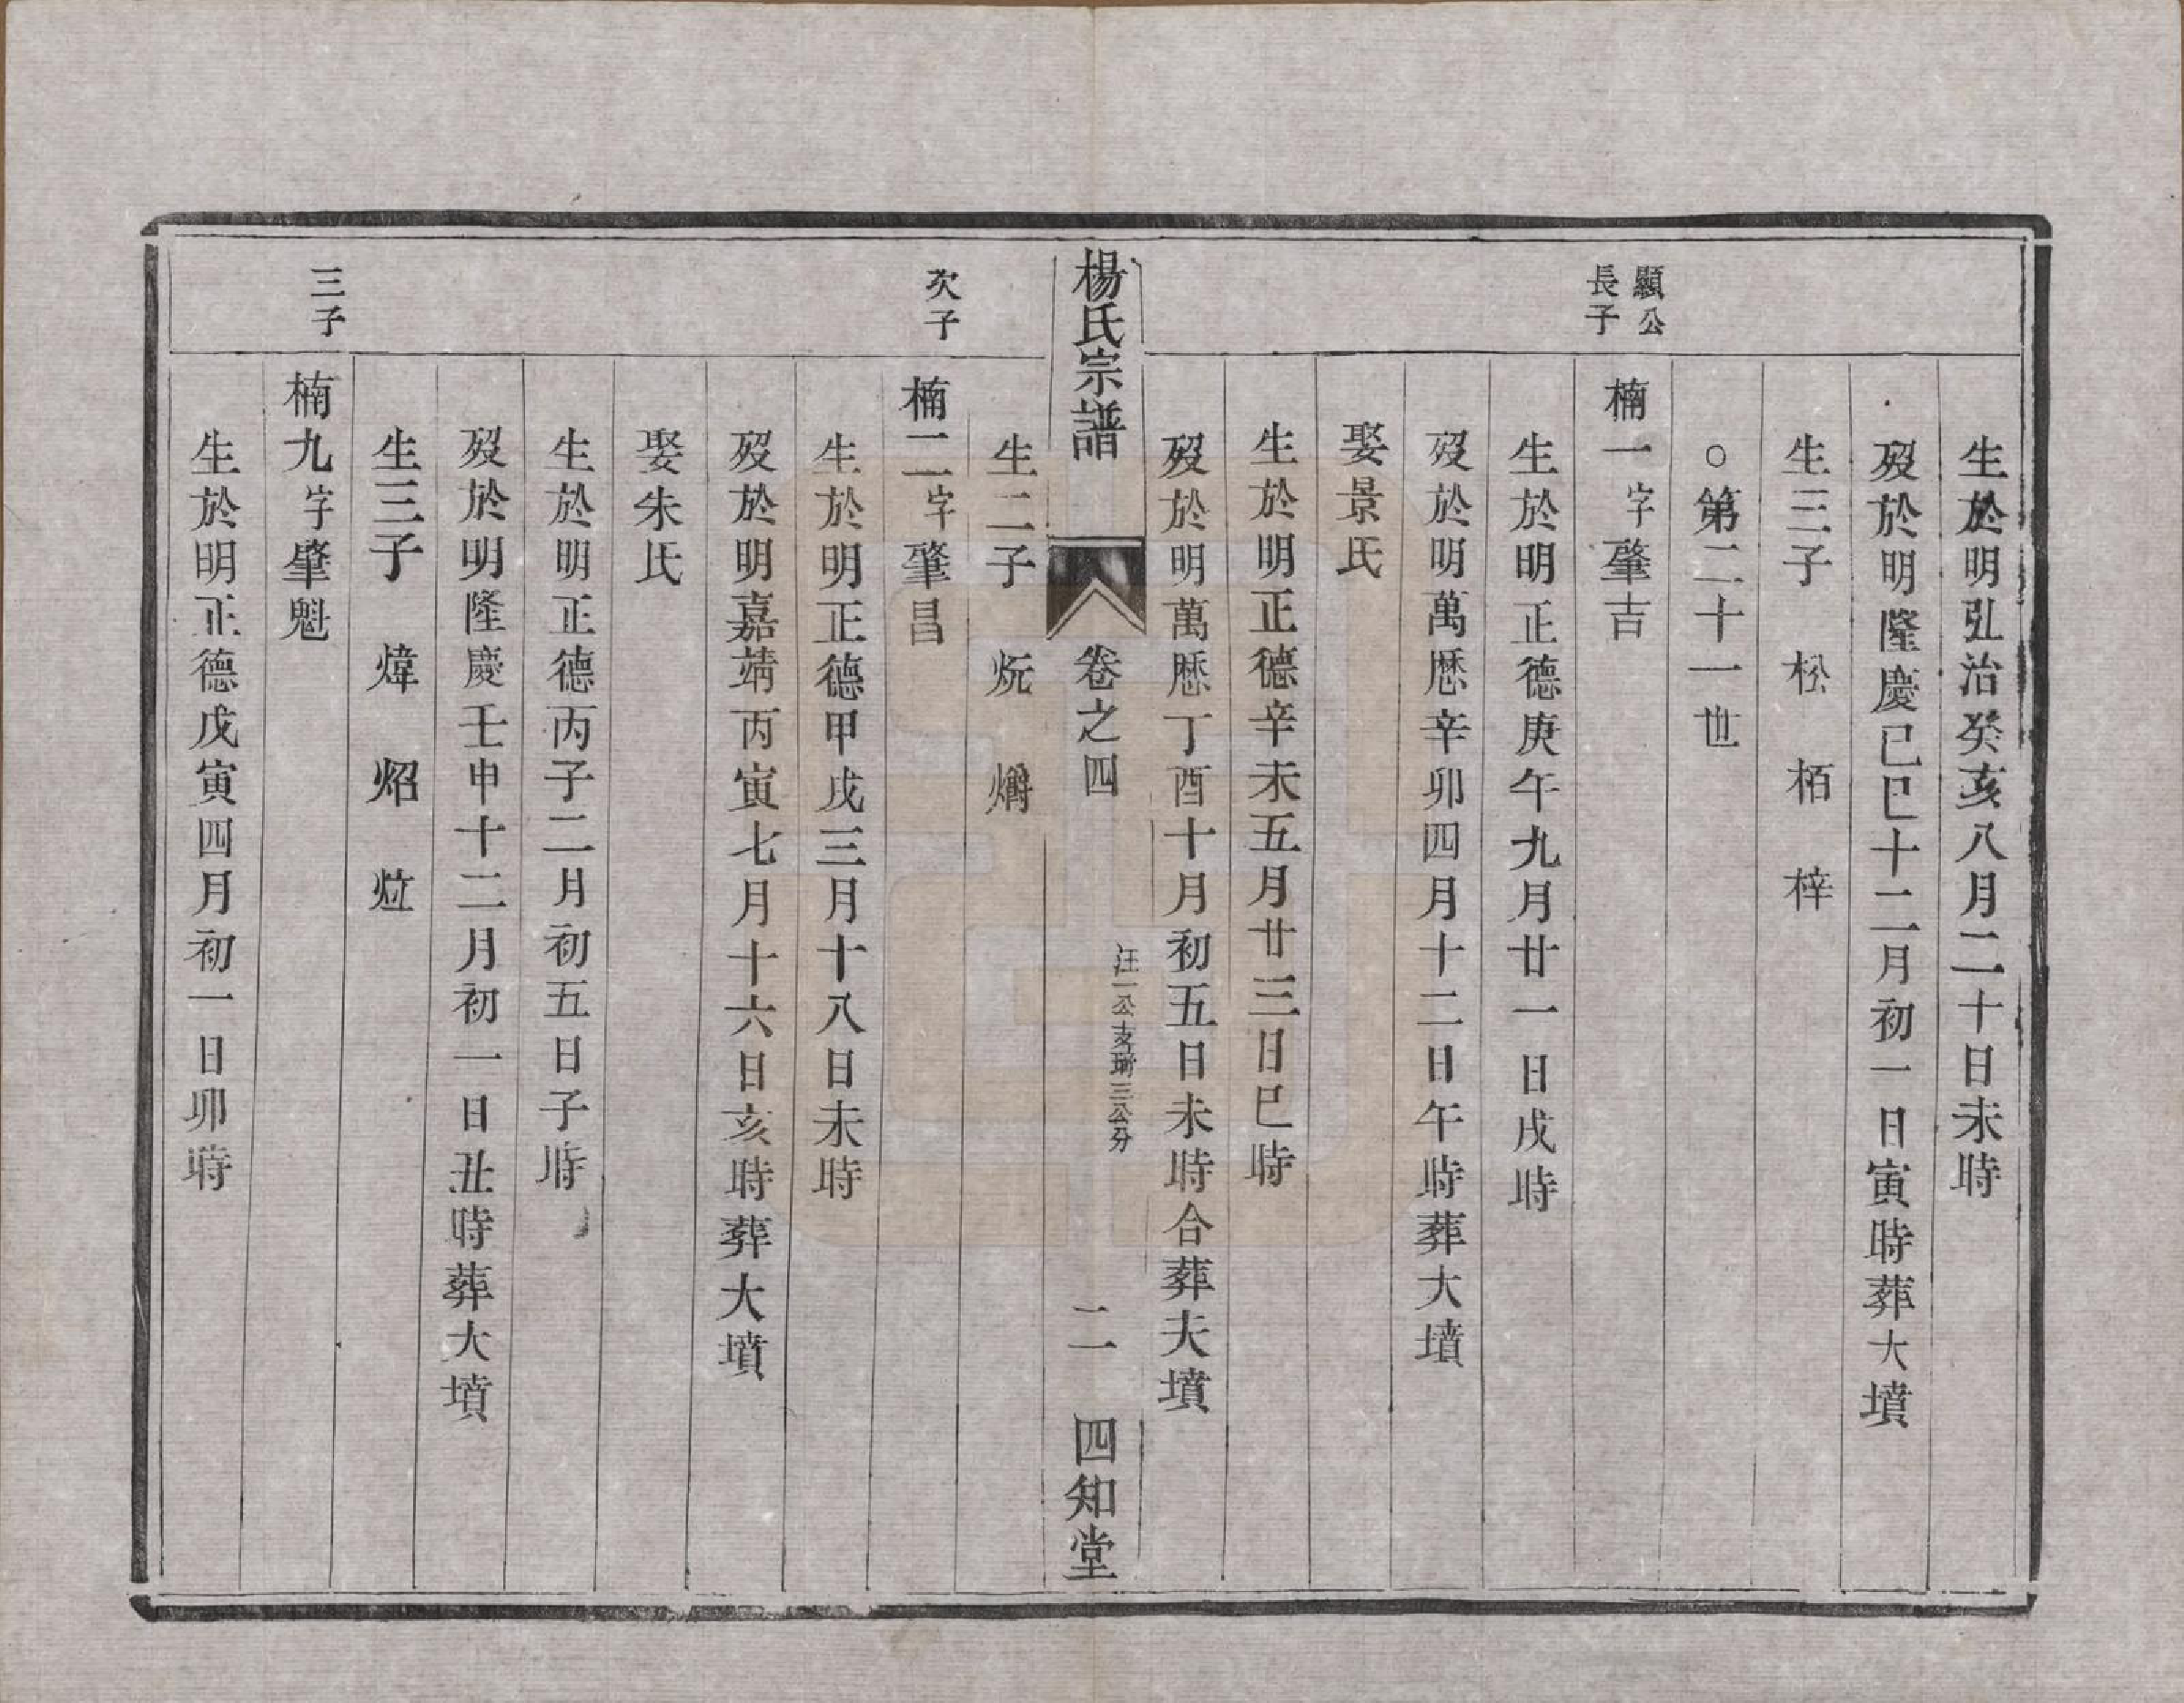 生於明弘治癸亥八月二十日未時
歿於明隆慶己巳十二月初一日寅時葬大墳
生三子　松　栢　梓
○第二十一世
顯公
長子
楠一字肇吉
生於明正德庚午九月廿一日戌時
歿於明萬厯辛卯四月十二日午時葬大墳
娶景氏
生於明正德辛未五月廿三日巳時
歿於明萬厯丁酉十月初五日未時合葬大墳
楊氏宗譜
卷之四
汪一公支瑺三公分
二
四知堂
生二子　炾　爝
次子
楠二字肇昌
生於明正德甲戌三月十八日未時
歿於明嘉靖丙寅七月十六日亥時葬大墳
娶朱氏
生於明正德丙子二月初五日子時
歿於明隆慶壬申十二月初一日丑時葬大墳
生三子　煒　炤　㶡
三子
楠九字肇魁
生於明正德戊寅四月初一日卯時